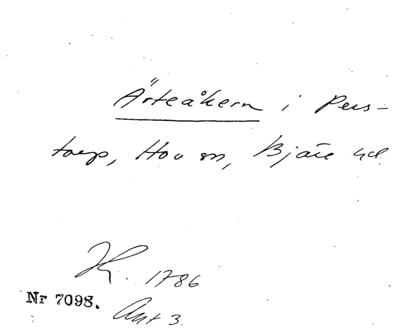 Ärteåkern i Pers-
torp, Hov sn, Bjäre hd
K. 1786
Nr 7098.
Akt 3